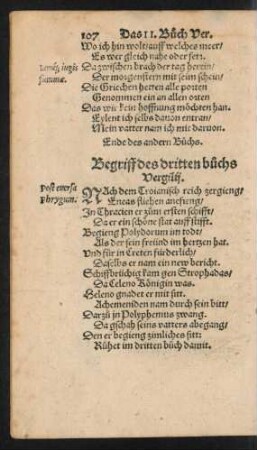 107 Das II. Bůch Ver.
Wo ich hin wolt/auff welches meer/
Es wer gleich nahe oder ferr.
Da zwischen brach der tag herein/
Der morgenstern mit seim schein/
Die Griechen hetten alle porten
Genommen ein an allen orten
Das wir kein hoffnung möchten han.
Eylent ich selbs dauon entran/
Mein vatter nam ich mit daruon.
Ende des andern Bůchs.
Begriff des dritten bůchs
Vergilij.
post eversa
phrygum.
NAch dem Troianisch reich zergieng/
Eneas fliehen anefung/
In Thracien er zům ersten schifft/
Da er ein schöne stat auff stifft.
Begieng Polydorum im todt/
Als der sein freünd im hertzen hat.
Vnd für in Creten fürderlich/
Daselbs er nam ein new bericht.
Schiffbrüchig kam gen Strophadas/
Da Celeno Königin was.
Heleno gnadet er mit sitt:
Achemeniden nam durch sein bitt/
Darzů jn Polyphemus zwang.
Da gschah seins vatters abegang/
Den er begieng zimliches sitt:
Rühet im dritten bůch damit.